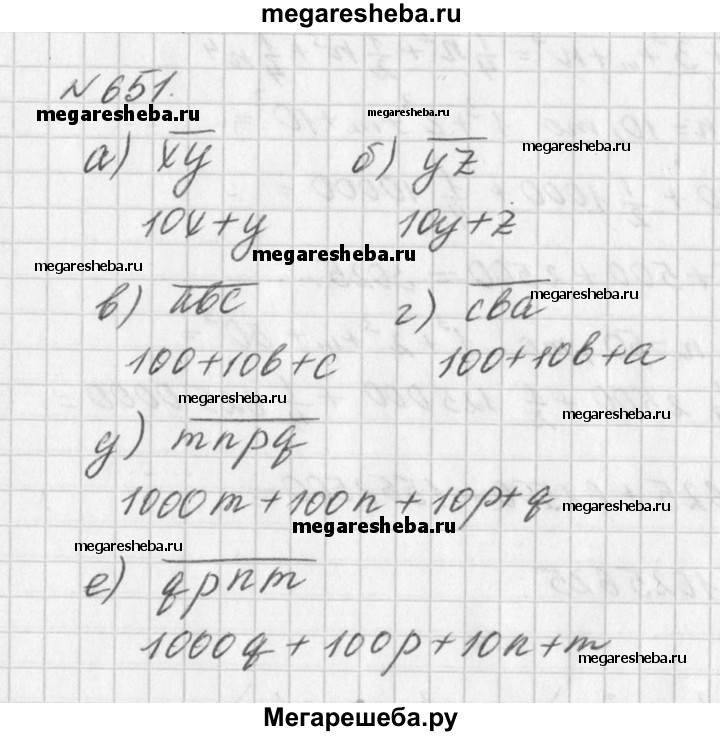 megaresheba.ru
№651.
megaresheba.ru megaresheba.ru
а) xy б) yz megaresheba.ru
10x+y 10y+z
megaresheba.ru megaresheba.ru
в) abc г) cba megaresheba.ru
100+10b+c 100+10b+a
megaresheba.ru megaresheba.ru
д) mnpq
1000m+100n+10p+q megaresheba.ru
megaresheba.ru
megaresheba.ru
е) qpnm
1000q+100p+10n+m
megaresheba.ru
Мегарешеба.ру